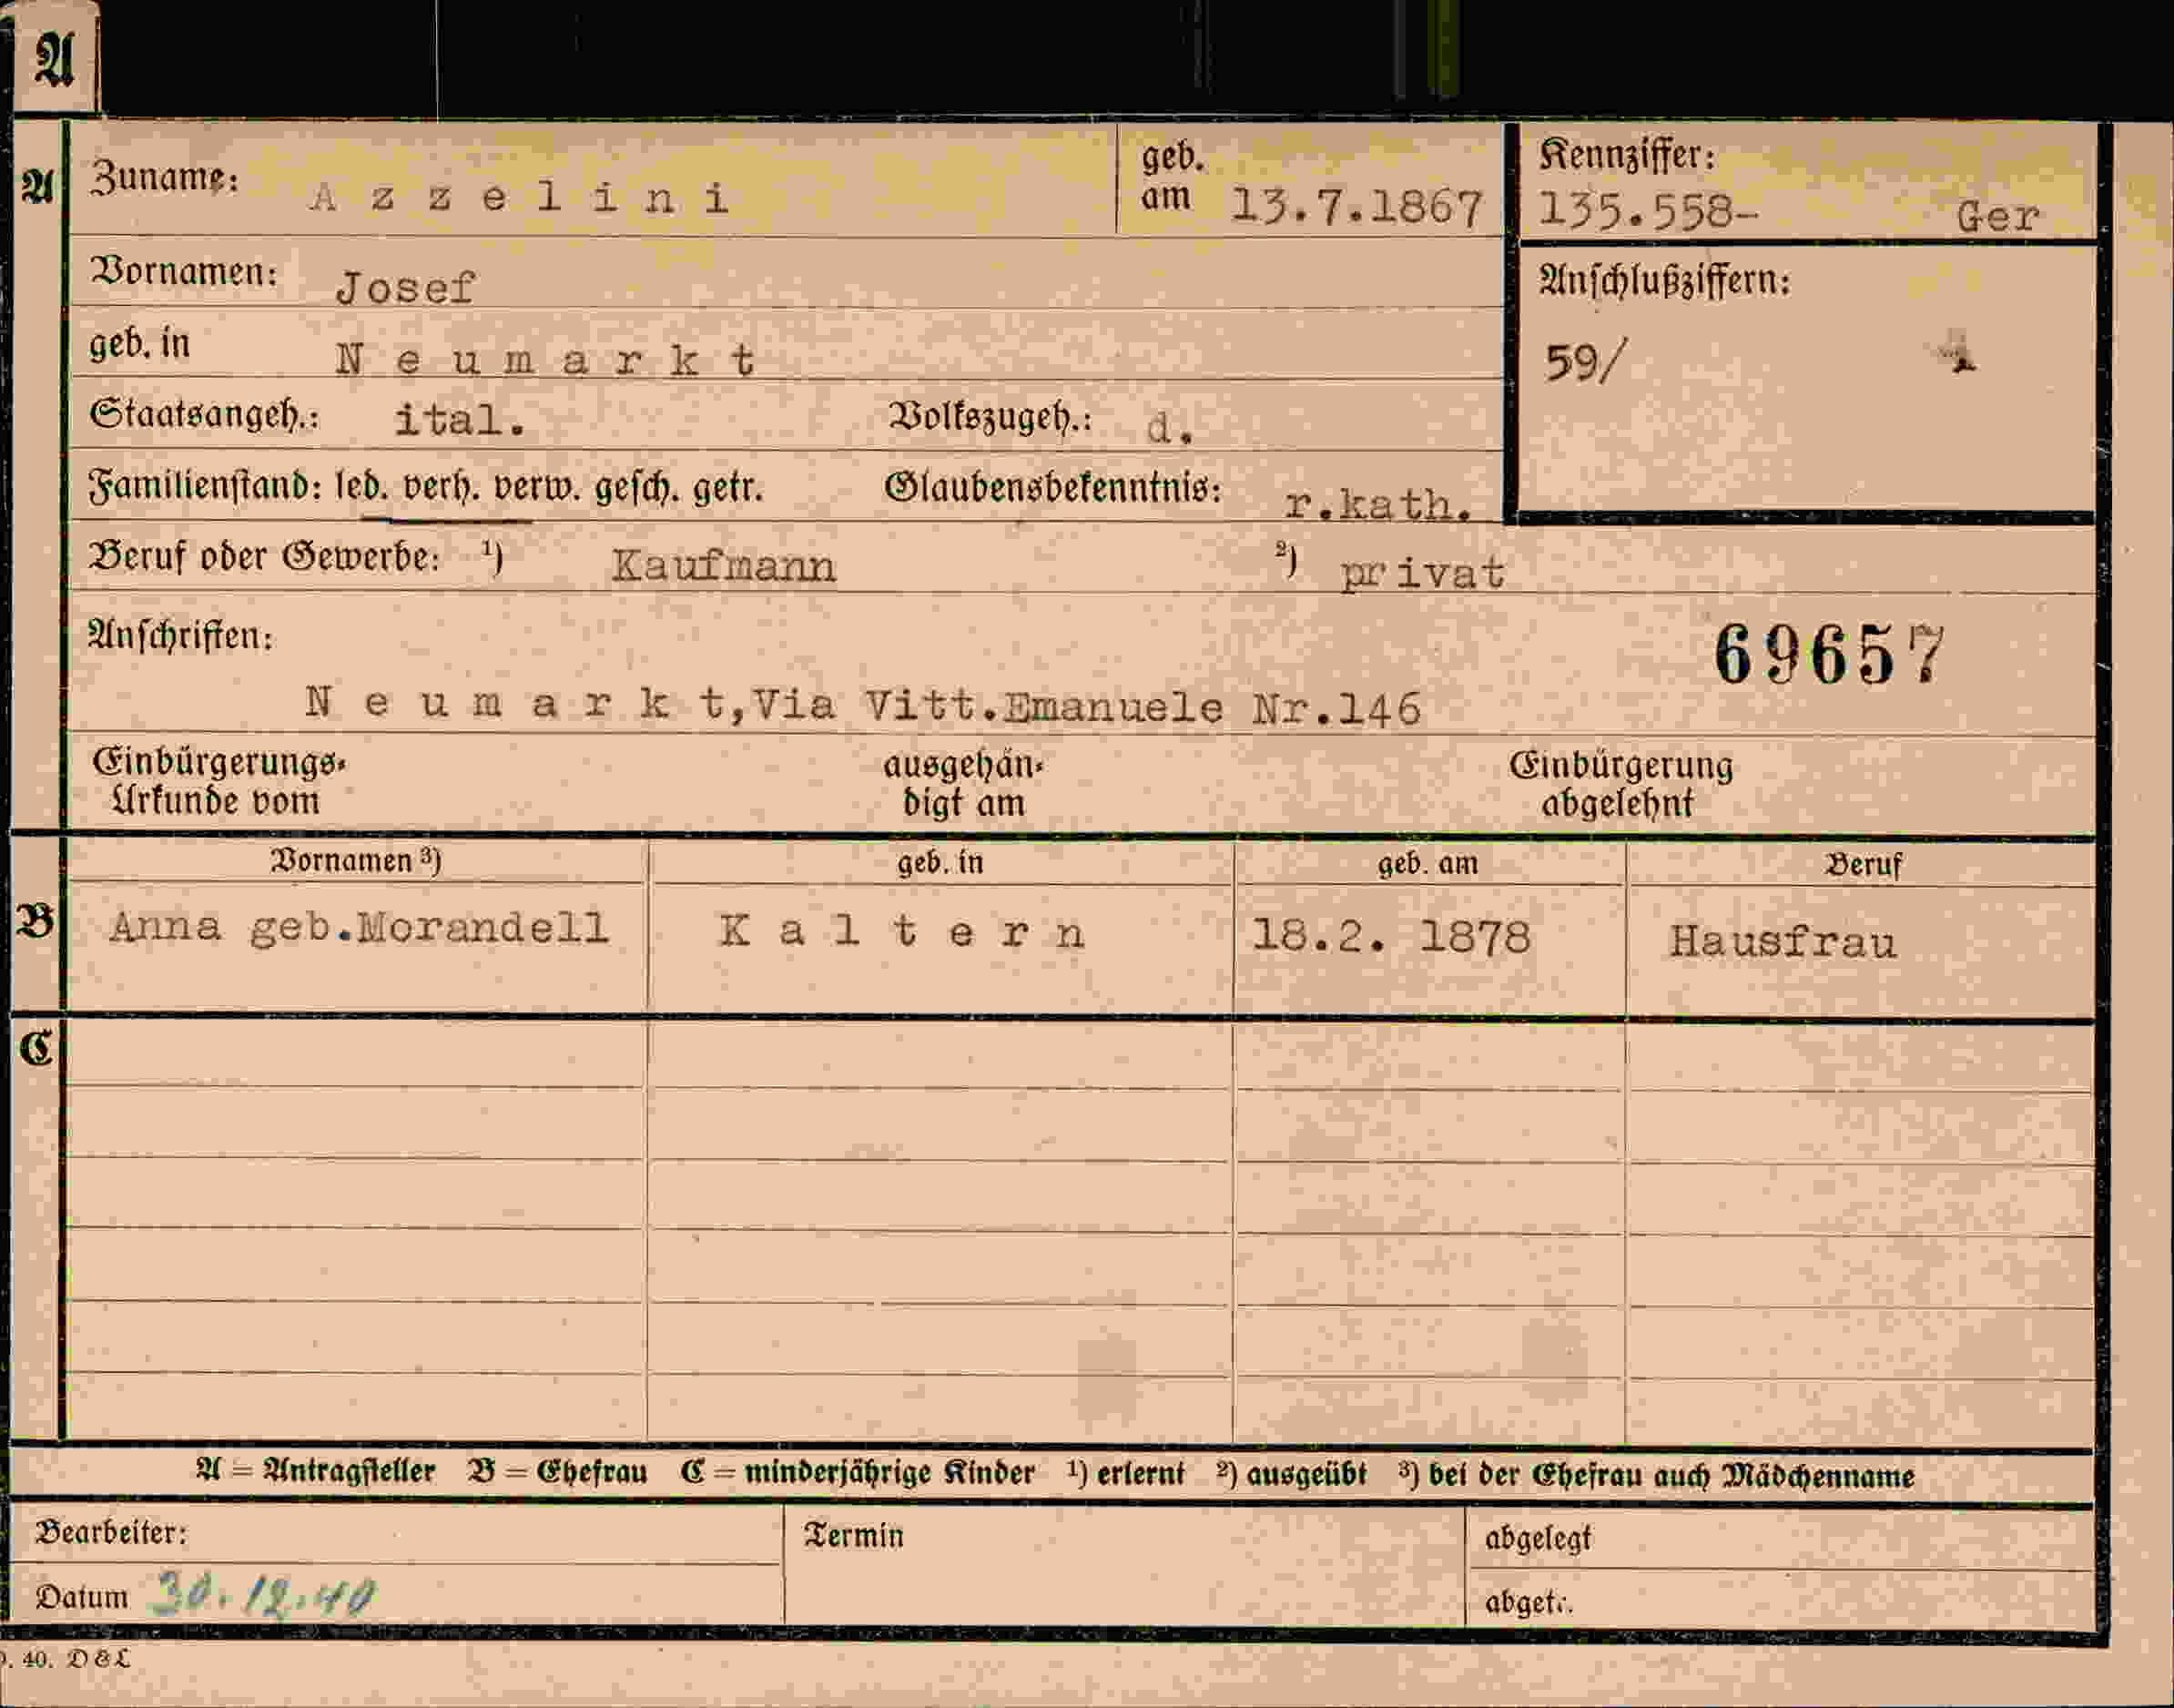 A
A
Zuname: Azzelini
geb. am 13.7.1867
Kennziffer:
135.558- Ger
Vornamen: Josef
Anschlußziffern:
59/
geb. in Neumarkt
Staatsangeh.: ital. Volkszugeh.: d.
Familienstand: led. verh. verw. gesch. getr. Glaubensbekenntnis: r.kath.
Beruf oder Gewerbe: ¹) Kaufmann ²) privat
Anschriften:
69657
Neumarkt,Via Vitt.Emanuele Nr.146
Einbürgerungs- ausgehän- Einbürgerung
Urkunde vom digt am abgelehnt
Vornamen ³) geb. in geb. am Beruf
B Anna geb.Morandell Kaltern 18.2. 1878 Hausfrau
C
A = Antragsteller B = Ehefrau C = minderjährige Kinder ¹) erlernt ²) ausgeübt ³) bei der Ehefrau auch Mädchenname
Bearbeiter: Termin abgelegt
Datum 30.12.40 abgetr.
40. D&L